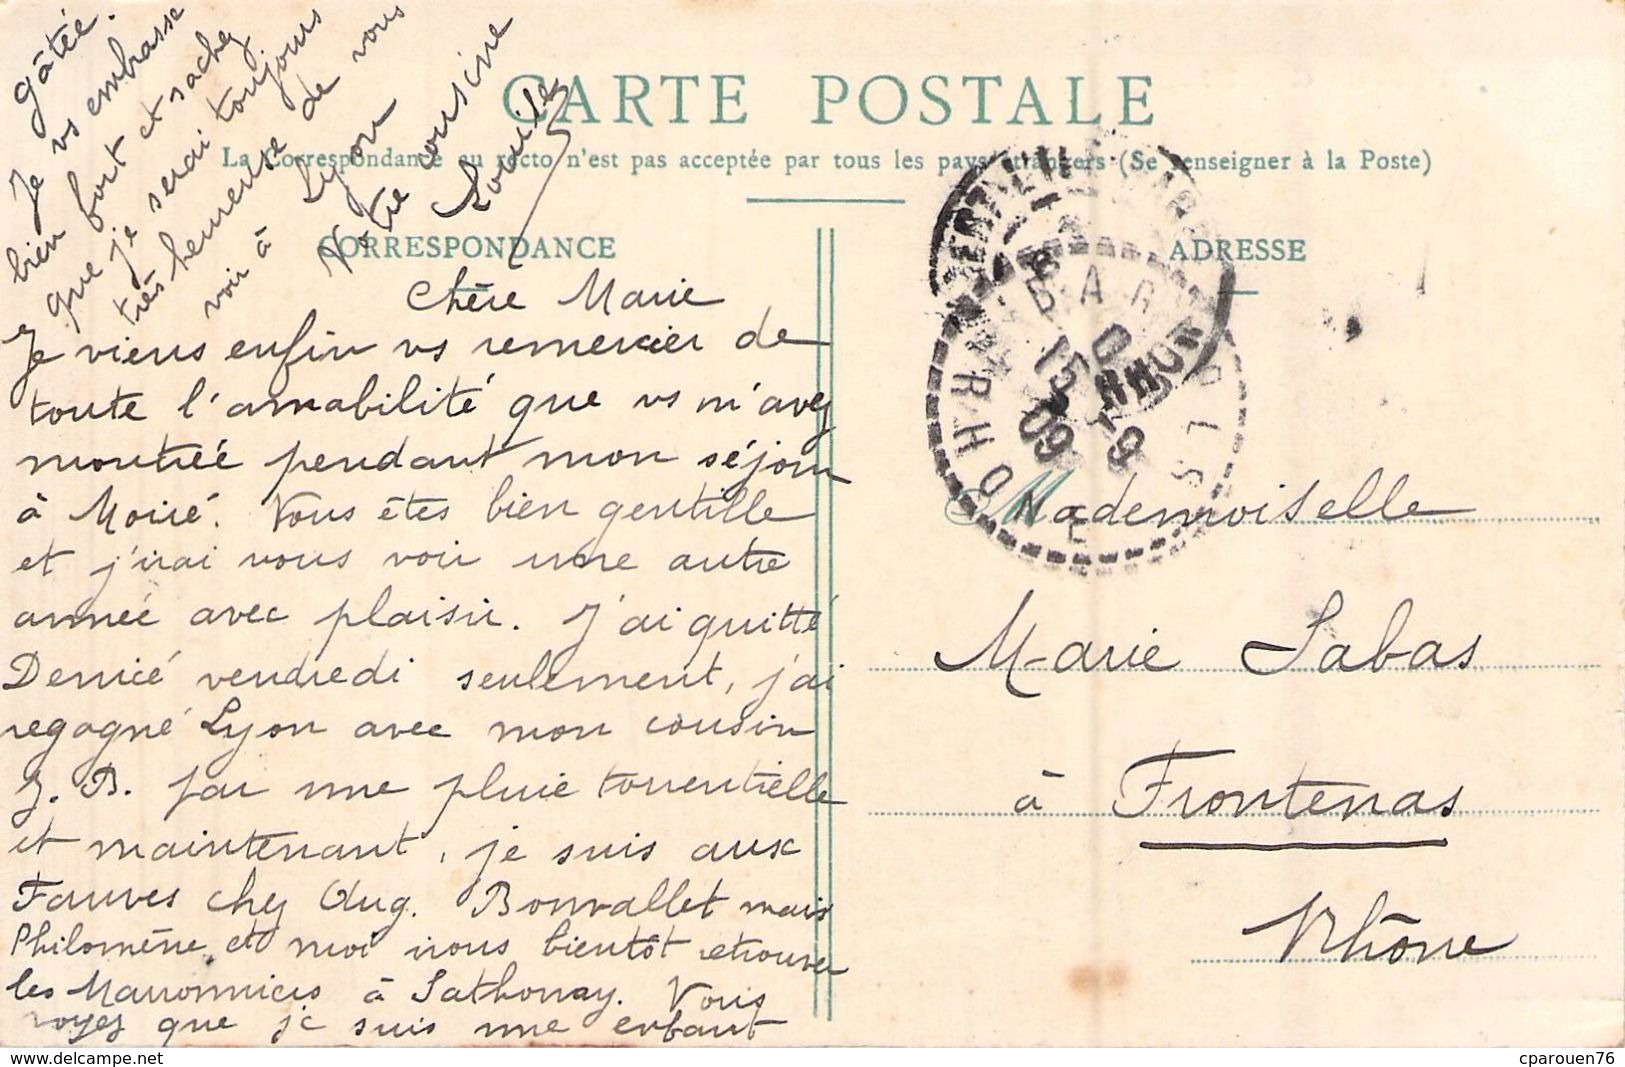 CARTE POSTALE
La Correspondance au recto n'est pas acceptée par tous les pays étrangers (Se renseigner à la Poste)
CORRESPONDANCE
ADRESSE
Chère Marie
Je viens enfin vs remercier de
toute l'amabilité que vs m'avez
montrée pendant mon séjour
à Moiré. Vous êtes bien gentille
et j'irai vous voir une autre
année avec plaisir. J'ai quitté
Denicé vendredi seulement, j'ai
regagné Lyon avec mon cousin
J. B. par une pluie torrentielle
et maintenant, je suis aux
Fauves chez Aug. Bonvallet mais
Philomène et moi irons bientôt retrouver
les Marronniers à Sathonay. Vous
voyez que je suis une enfant
gâtée.
Je vs embrasse
bien fort et sachez
que je serai toujours
très heureuse de vous
voir à Lyon
Votre cousine
Louise
Mademoiselle
Marie Sabas
à Frontenas
Rhône
15
09
RHONE
cparouen76
www.delcampe.net